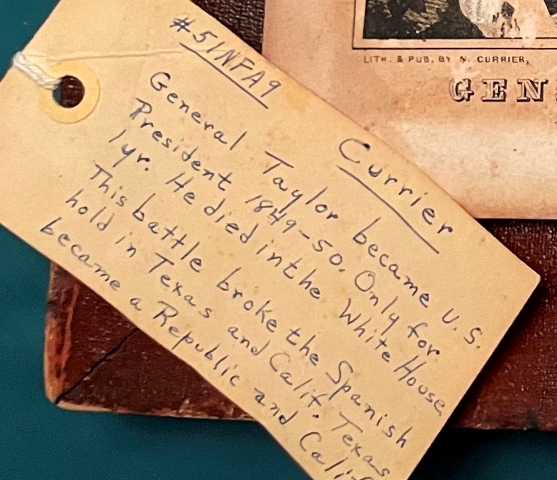 #51NFA9
Currier
General Taylor became U.S.
President 1849-50. Only for
1yr. He died in the White House
This battle broke the Spanish
hold in Texas and Calif. Texas
became a Republic and Calif
LITH. & PUB. BY N. CURRIER,
GEN